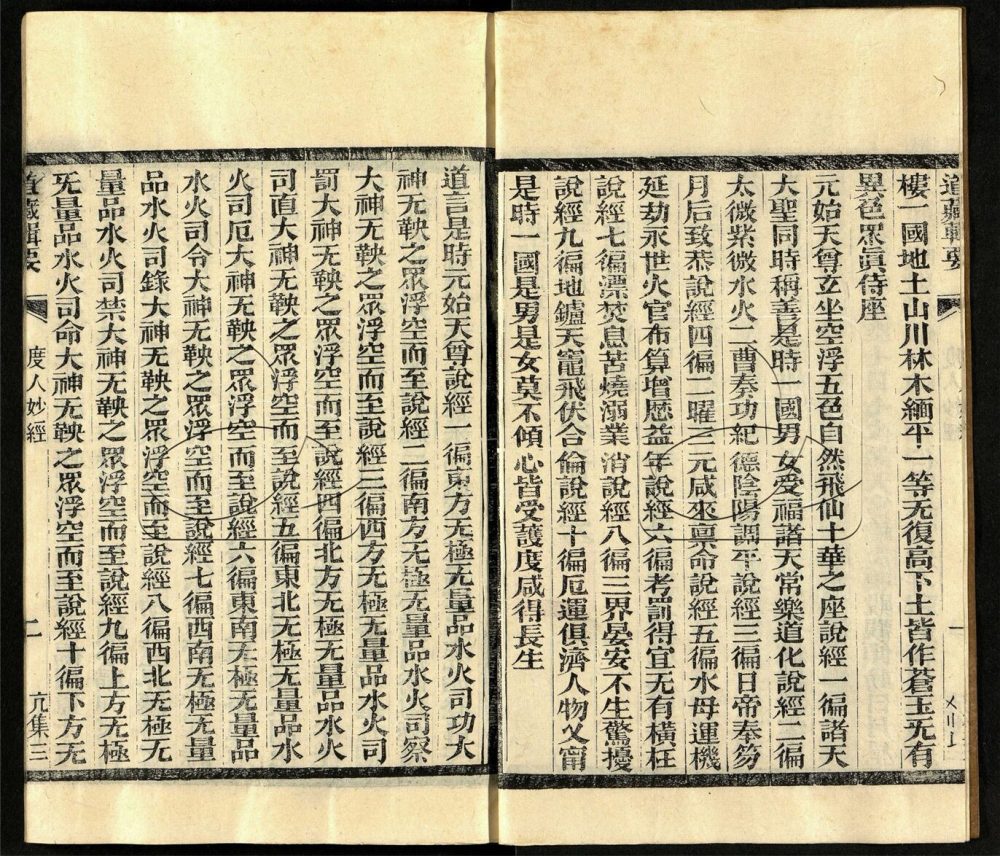 道藏輯要
樓一國地土山川林木緬平一等无復高下土皆作蒼玉无有
異色眾眞侍座
元始天尊玄坐空浮五色自然飛仙十華之座說經一徧諸天
大聖同時稱善是時一國男女愛福諸天常樂道化說經二徧
太微紫微水火二曹奏功紀德陰陽調平說經三徧日帝奉笏
月后致恭說經四徧二曜三元咸來稟命說經五徧水母運機
延劫永世火官布算增歷益年說經六徧考罰得宜无有橫枉
說經七徧漂焚息苦燒溺業消說經八徧三界晏安不生驚擾
說經九徧地鑪天竈飛伏合倫說經十徧厄運俱濟人物乂甯
是時一國是男是女莫不傾心皆受護度咸得長生
道言是時元始天尊說經一徧東方无極无量品水火司功大
神无鞅之眾浮空而至說經二徧南方无極无量品水火司察
大神无鞅之眾浮空而至說經三徧西方无極无量品水火司
罰大神无鞅之眾浮空而至說經四徧北方无極无量品水火
司直大神无鞅之眾浮空而至說經五徧東北无極无量品水
火司厄大神无鞅之眾浮空而至說經六徧東南无極无量品
水火司令大神无鞅之眾浮空而至說經七徧西南无極无量
品水火司錄大神无鞅之眾浮空而至說經八徧西北无極无
量品水火司禁大神无鞅之眾浮空而至說經九徧上方无極
旡量品水火司命大神无鞅之眾浮空而至說經十徧下方无
道藏輯要
度人妙經
二
亢集三